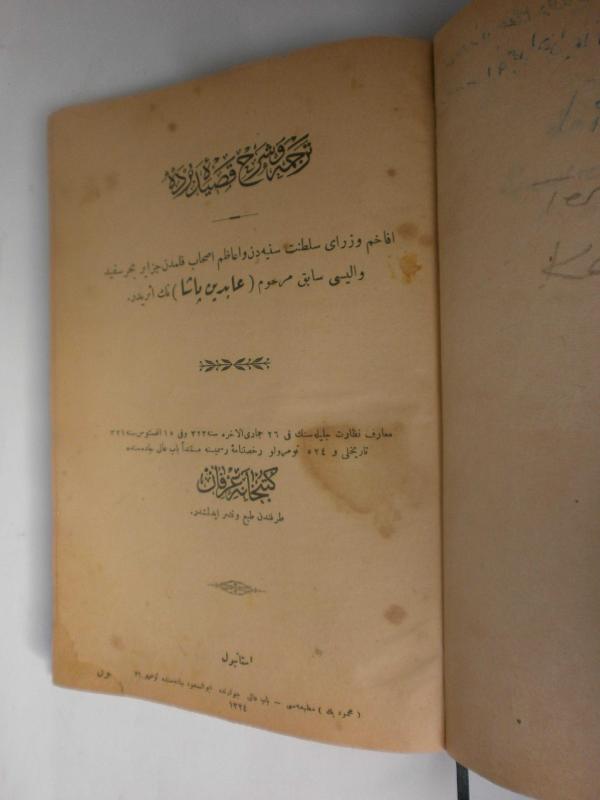 ترجمه و شرح قصیدهٔ برده
افاخم وزرای سلطنت سنیه‌دن و اعاظم اصحاب قلمدن جزایر بحر سفید
والیسی سابق مرحوم (عابدین پاشا) نك أثریدر.
معارف نظارت جلیله‌سنك فی ٢٦ جمادی الاخره سنه ٣٢٣ وفی ١٥ اغستوس سنه ٣٢١
تاریخلی و ٥٢٤ نومرولو رخصتنامهٔ رسمیسنه مستنداً باب عالی جاده‌سنده
كتبخانهٔ عرفان
طرفندن طبع و نشر ایدلمشدر.
استانبول
(محمود بك) مطبعه‌سی — باب عالی جوارنده ابوالسعود جاده‌سنده نومرو
١٣٢٤